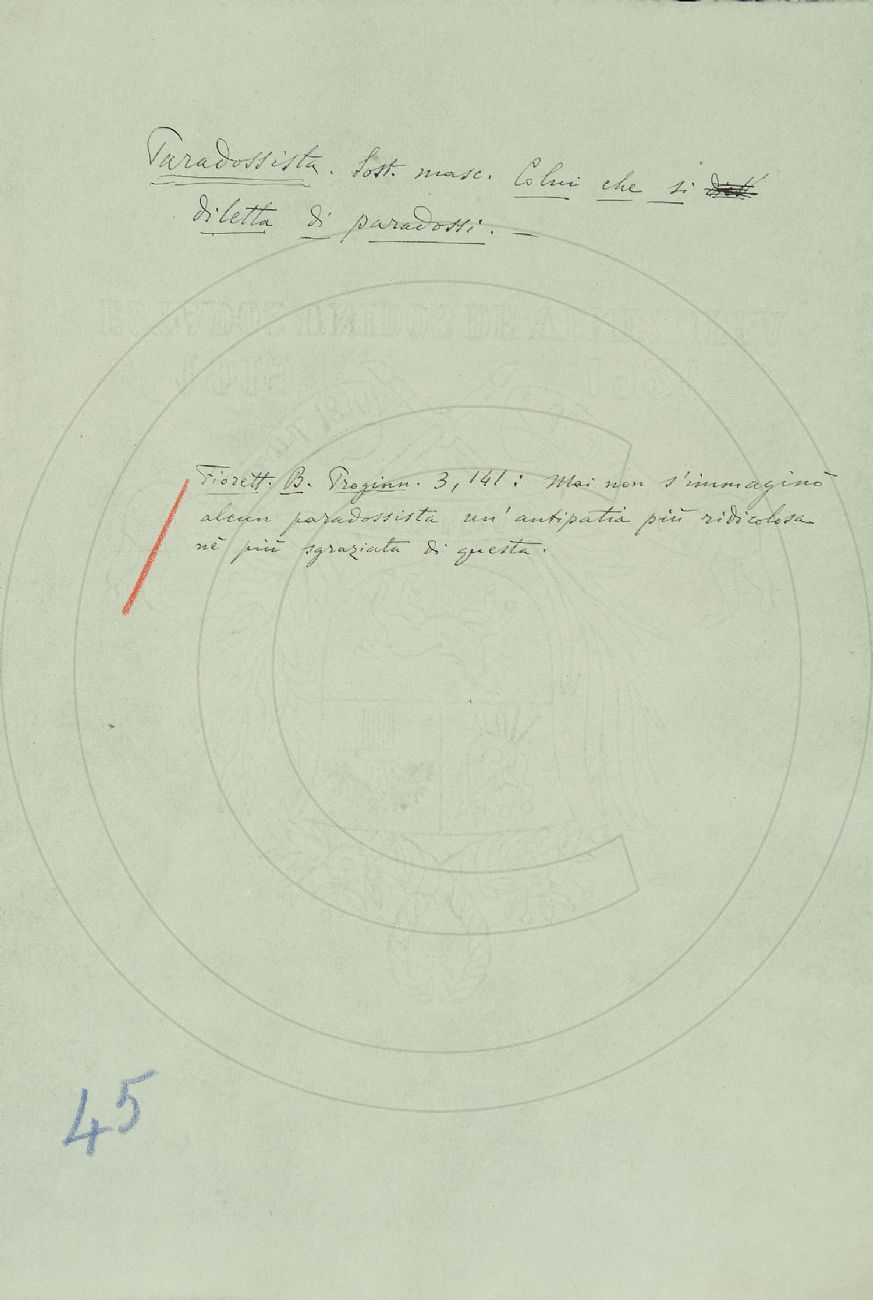 Paradossista. Sost. masc. Colui che si
diletta di paradossi. —
Fiorett. B. Proginn. 3, 141: Mai non s'immaginò
alcun paradossista un'antipatia più ridicolosa
nè più sgraziata di questa.
45